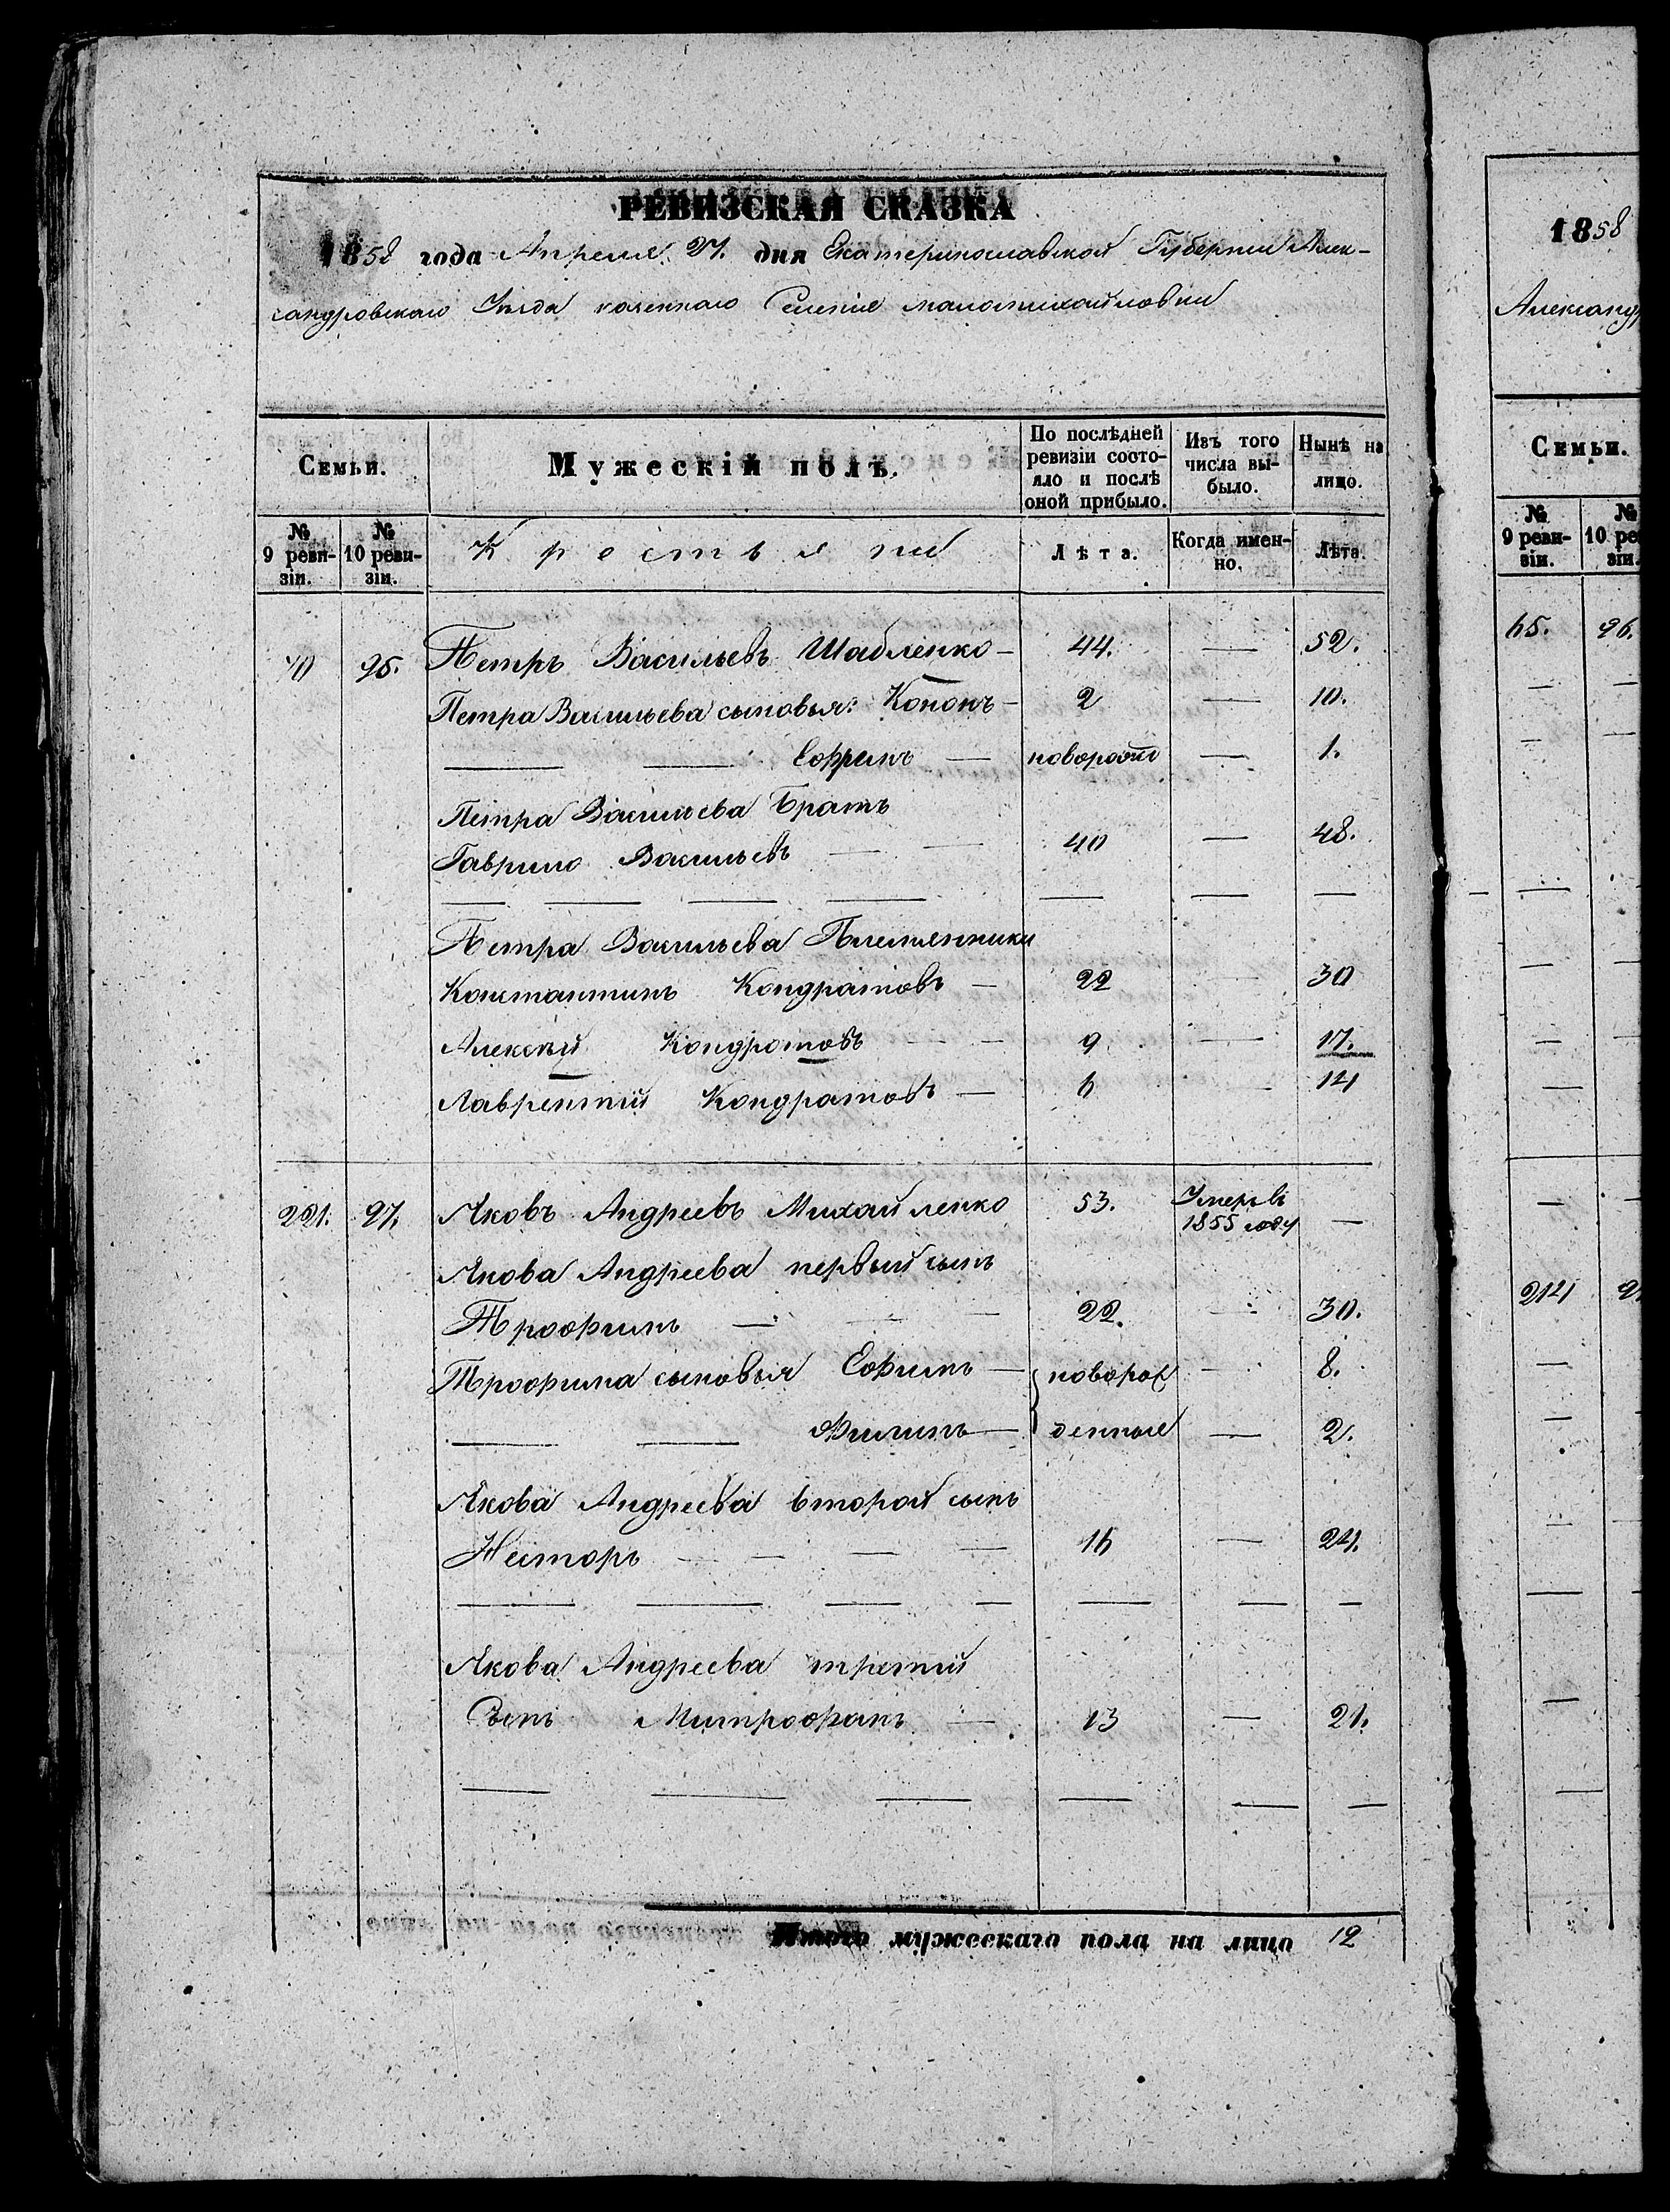 РЕВИЗСКАЯ СКАЗКА
1858 года Апреля 27. дня Екатеринославской Губернии Алек-
сандровскаго Уезда казеннаго Селения маломихайловки
Семьи.
Мужескій полъ.
По послѣдней ревизіи состо-яло и послѣ оной прибыло.
Изъ того числа вы-было.
Нынѣ на лицо.
№ 9 реви-зіи.
№ 10 реви-зіи.
Крестьяне
Лѣта.
Когда имен-но.
Лѣта.
70 95. Петръ Васильевъ Шабленко — 44. — 52.
Петра Васильева сыновья: Кононъ — 2 — 10.
— — Ефремъ — новорож — 1.
Петра Васильева Братъ
Гаврило Васильевъ — — 40 — 48.
Петра Васильева Племянники
Константинъ Кондратовъ — 22 — 30
Алексѣй Кондратовъ — — 9 — 17.
Лаврентий Кондратовъ — 6 — 14
221. 97. Яковъ Андреевъ Михайленко 53. Умеръ въ 1855 году —
Якова Андреева первый сынъ
Трофимъ — — — 22. — 30.
Трофима сыновья Ефимъ — новорож — 8.
— — Филипъ — денные — 2.
Якова Андреева второй сынъ
Несторъ — — — — 16 — 24.
Якова Андреева третий
Сынъ Митрофанъ — 13 — 21.
Итого мужескаго пола на лицо 12
1858
Александр
Семьи.
№ 9 реви-зіи.
№ 10 ре зіи.
65. 96.
214